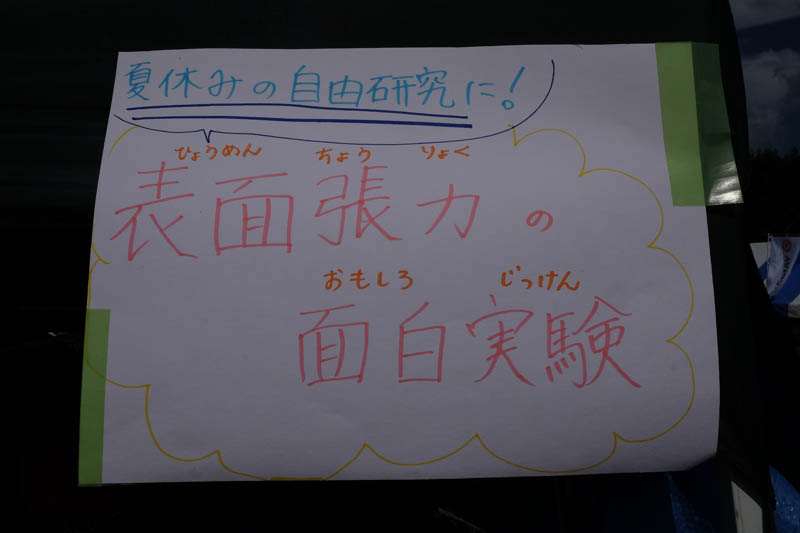 夏休みの自由研究に!
ひょうめん ちょう りょく
表面張力の
おもしろ じっけん
面白実験